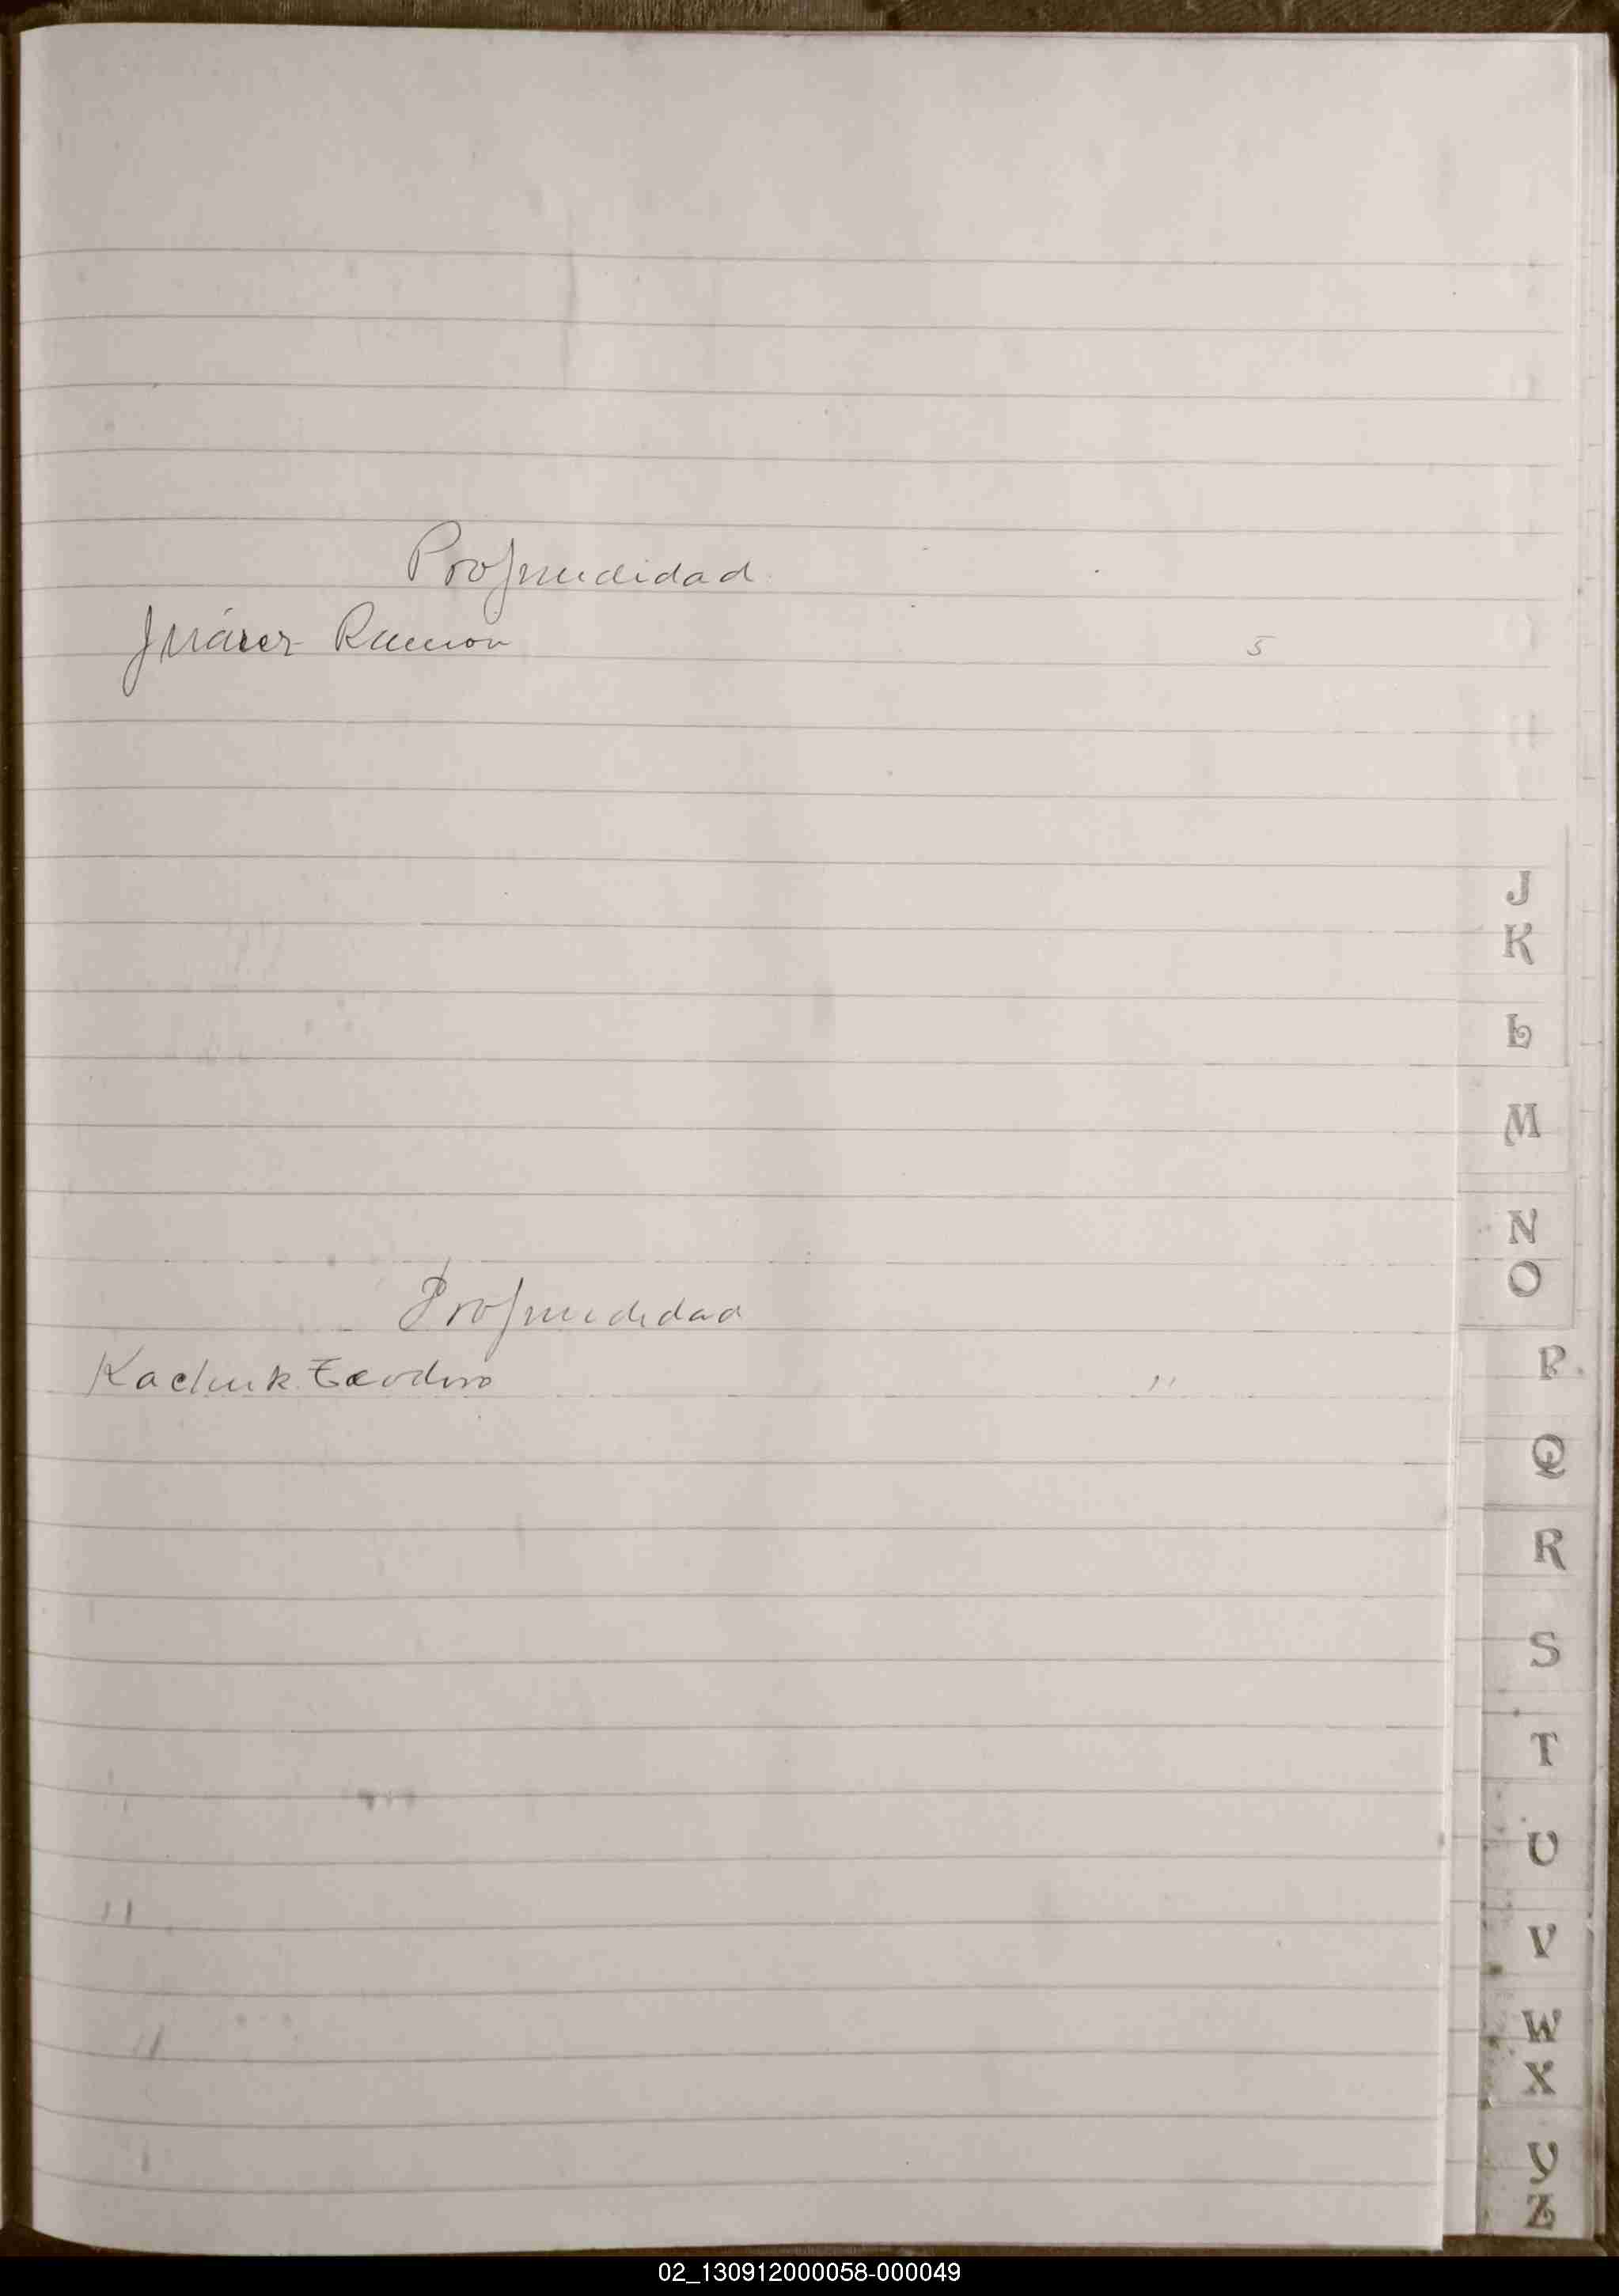 Profundidad
Juárez Ramon 5
Profundidad
Kachuk Teodoro 11
J
K
L
M
N
O
P
Q
R
S
T
U
V
W
X
Y
Z
02_130912000058-000049